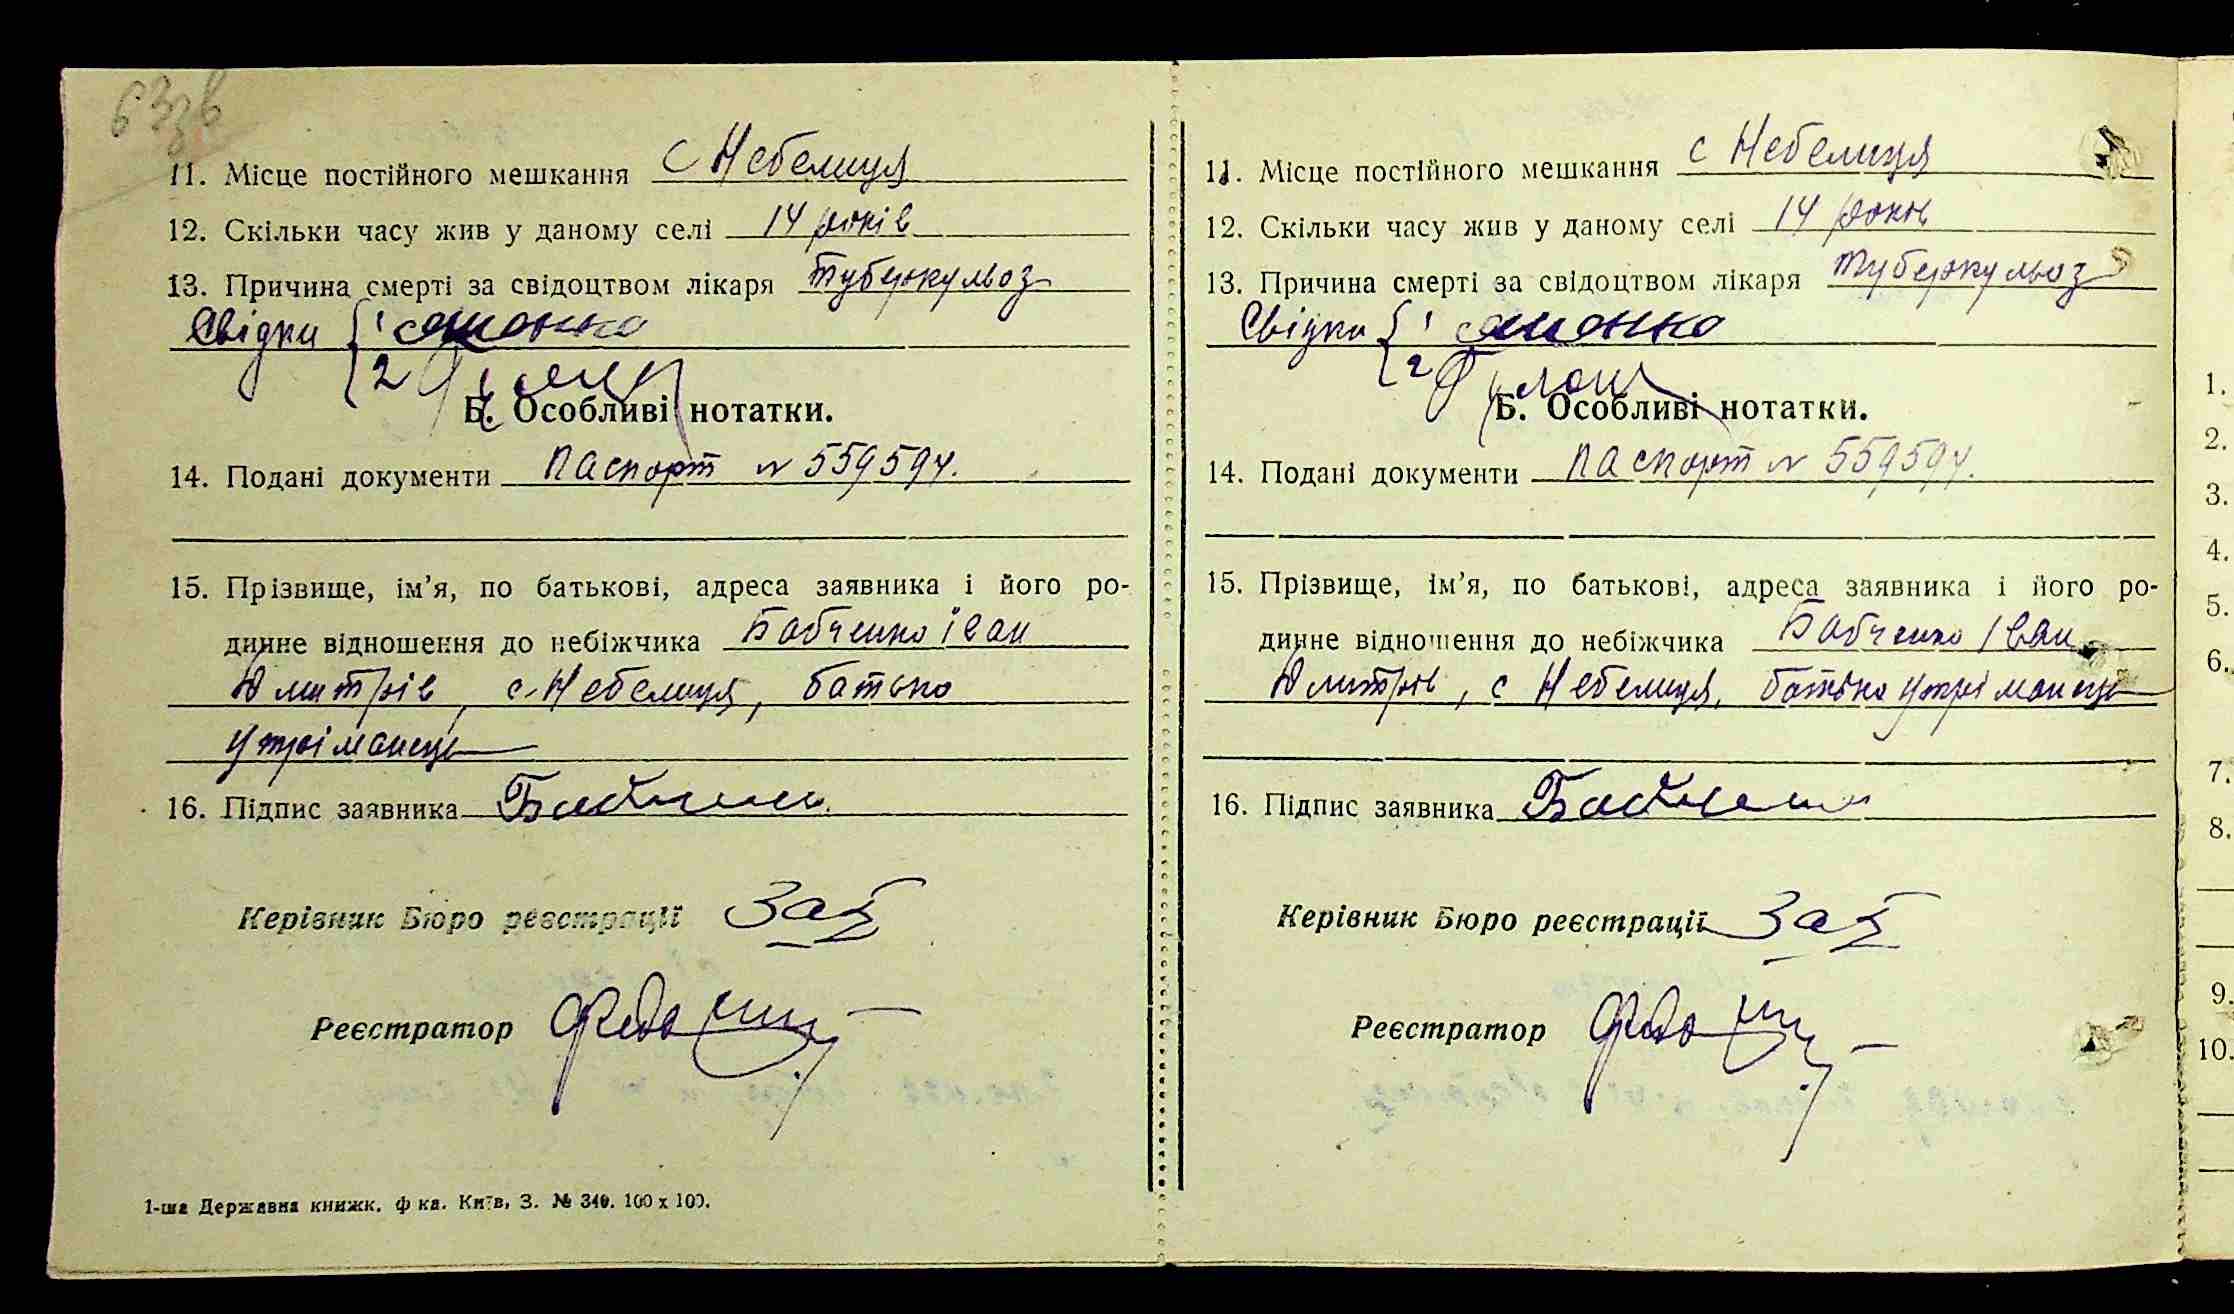 11. Місце постійного мешкання с Небелиця
12. Скільки часу жив у даному селі 14 років
13. Причина смерті за свідоцтвом лікаря туберкульоз
Свідки 1
2
Б. Особливі нотатки.
14. Подані документи паспорт № 559594.
15. Прізвище, ім’я, по батькові, адреса заявника і його ро-
динне відношення до небіжчика Бабченко Іван
Дмитрів, с. Небелиця, батько
утріманець
16. Підпис заявника Бабченко
Керівник Бюро реєстрації
Реєстратор
1-ша Державна книжк. ф-ка. Київ, З. № 340. 100 х 100.
11. Місце постійного мешкання с Небелиця
12. Скільки часу жив у даному селі 14 років
13. Причина смерті за свідоцтвом лікаря туберкульоз
Свідки 1
2
Б. Особливі нотатки.
14. Подані документи паспорт № 559594.
15. Прізвище, ім’я, по батькові, адреса заявника і його ро-
динне відношення до небіжчика Бабченко Іван
Дмитрів, с Небелиця, батько утріманець
16. Підпис заявника Бабченко
Керівник Бюро реєстрації
Реєстратор
1.
2.
3.
4.
5.
6.
7.
8.
9.
10.